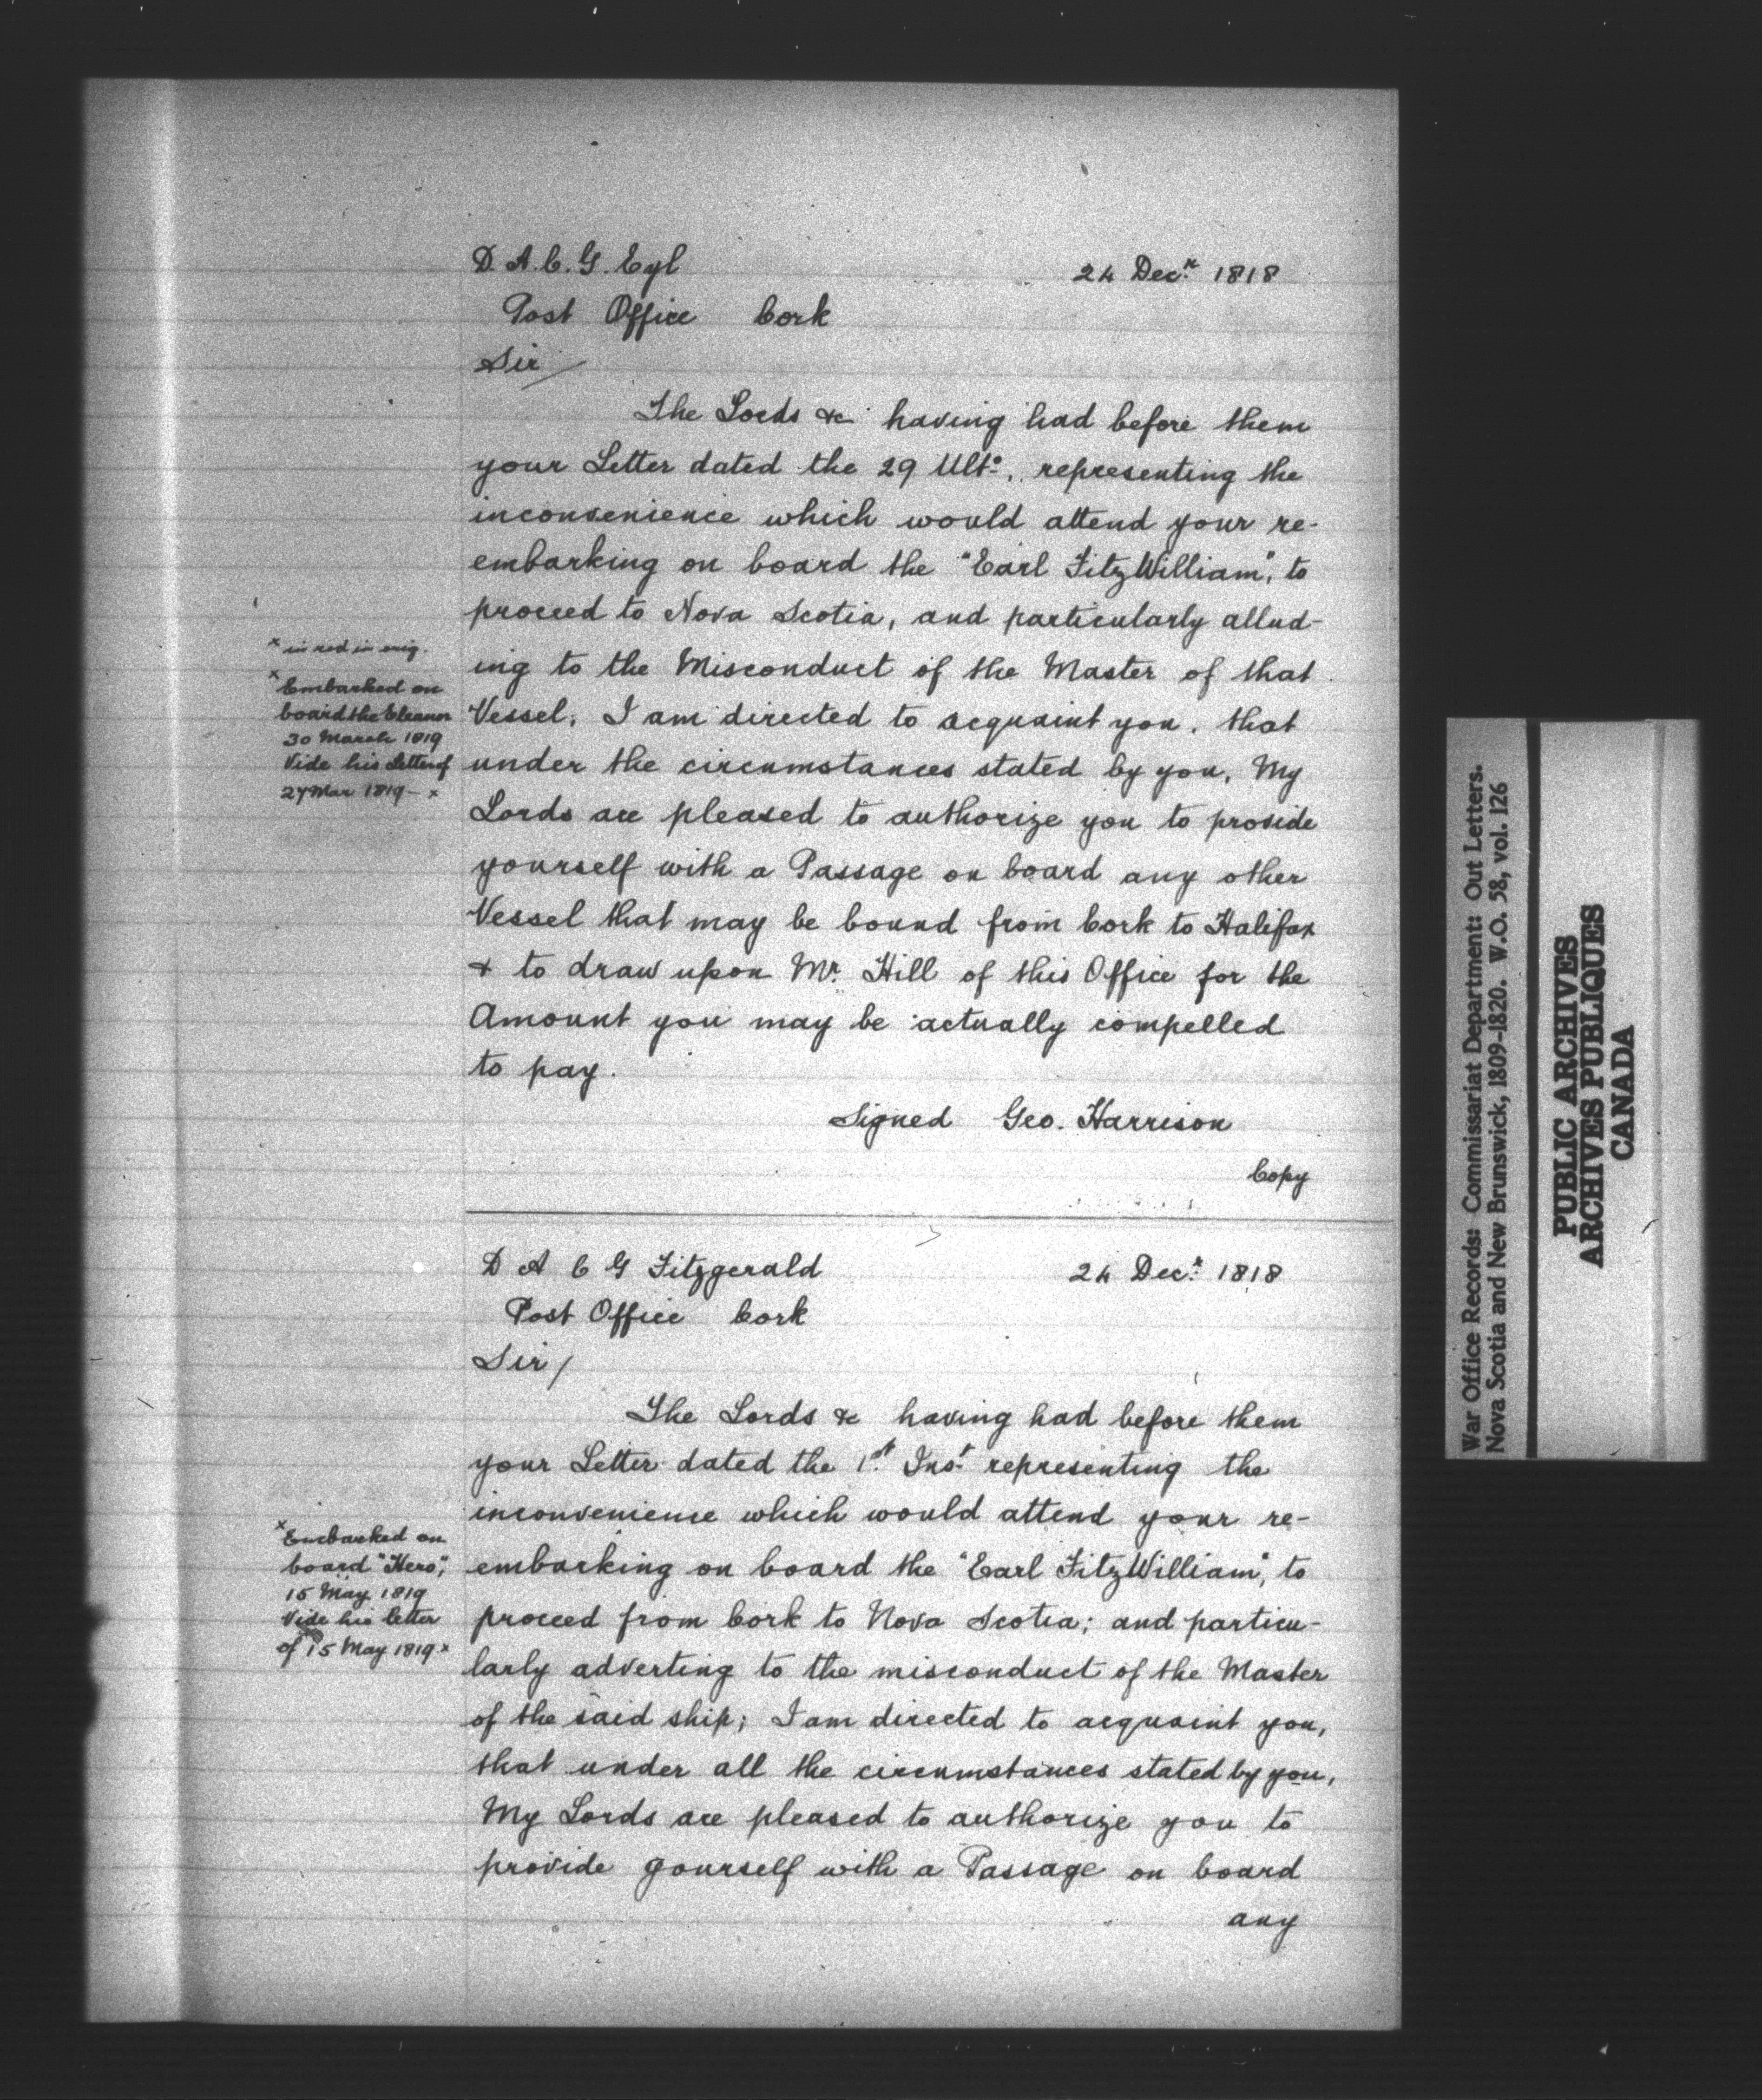 D. A. C. G. Eyl
24 Decr. 1818
Post Office Cork
Sir/
The Lords &c having had before them
your Letter dated the 29 Ulto. representing the
inconvenience which would attend your re-
embarking on board the "Earl FitzWilliam", to
proceed to Nova Scotia, and particularly allud-
ing to the Misconduct of the Master of that
Vessel, I am directed to acquaint you, that
under the circumstances stated by you, My
Lords are pleased to authorize you to provide
yourself with a Passage on board any other
Vessel that may be bound from Cork to Halifax
& to draw upon Mr. Hill of this Office for the
Amount you may be actually compelled
to pay.
Signed Geo. Harrison
Copy
x in red in orig.
x Embarked on
board the Eleanor
30 March 1819
Vide his Letter of
27 Mar 1819 - x
D A C G Fitzgerald
24 Decr. 1818
Post Office Cork
Sir/
The Lords &c having had before them
your Letter dated the 1st. Inst. representing the
inconvenience which would attend your re-
embarking on board the "Earl FitzWilliam", to
proceed from Cork to Nova Scotia; and particu-
larly adverting to the misconduct of the Master
of the said ship; I am directed to acquaint you,
that under all the circumstances stated by you,
My Lords are pleased to authorize you to
provide yourself with a Passage on board
any
x Embarked on
board "Hero",
15 May 1819
Vide his letter
of 15 May 1819 x
War Office Records: Commissariat Department: Out Letters.
Nova Scotia and New Brunswick, 1809-1820. W.O. 58, vol. 126
PUBLIC ARCHIVES
ARCHIVES PUBLIQUES
CANADA